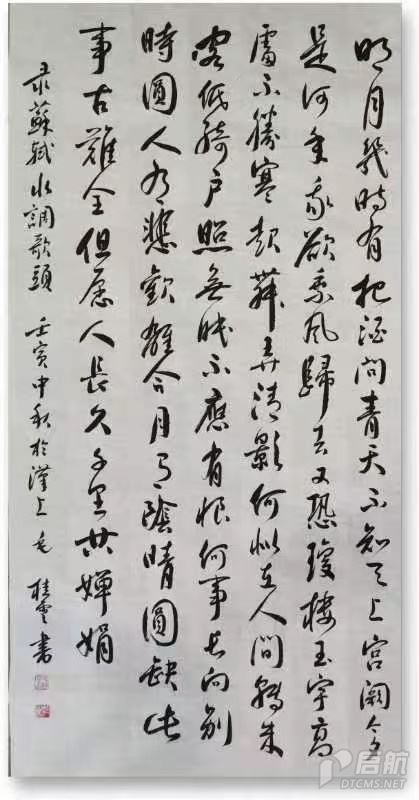 明月幾時有把酒問青天不知天上宮闕今夕
是何年我欲乘風歸去又恐瓊樓玉宇高
處不勝寒起舞弄清影何似在人間轉朱
閣低綺户照無眠不應有恨何事長向别
時圓人有悲歡離合月有陰晴圓缺此
事古難全但愿人長久千里共嬋娟
录蘇軾水調歌頭 壬寅中秋於漢上 毛桂雲書
启航
DTCMS.NET